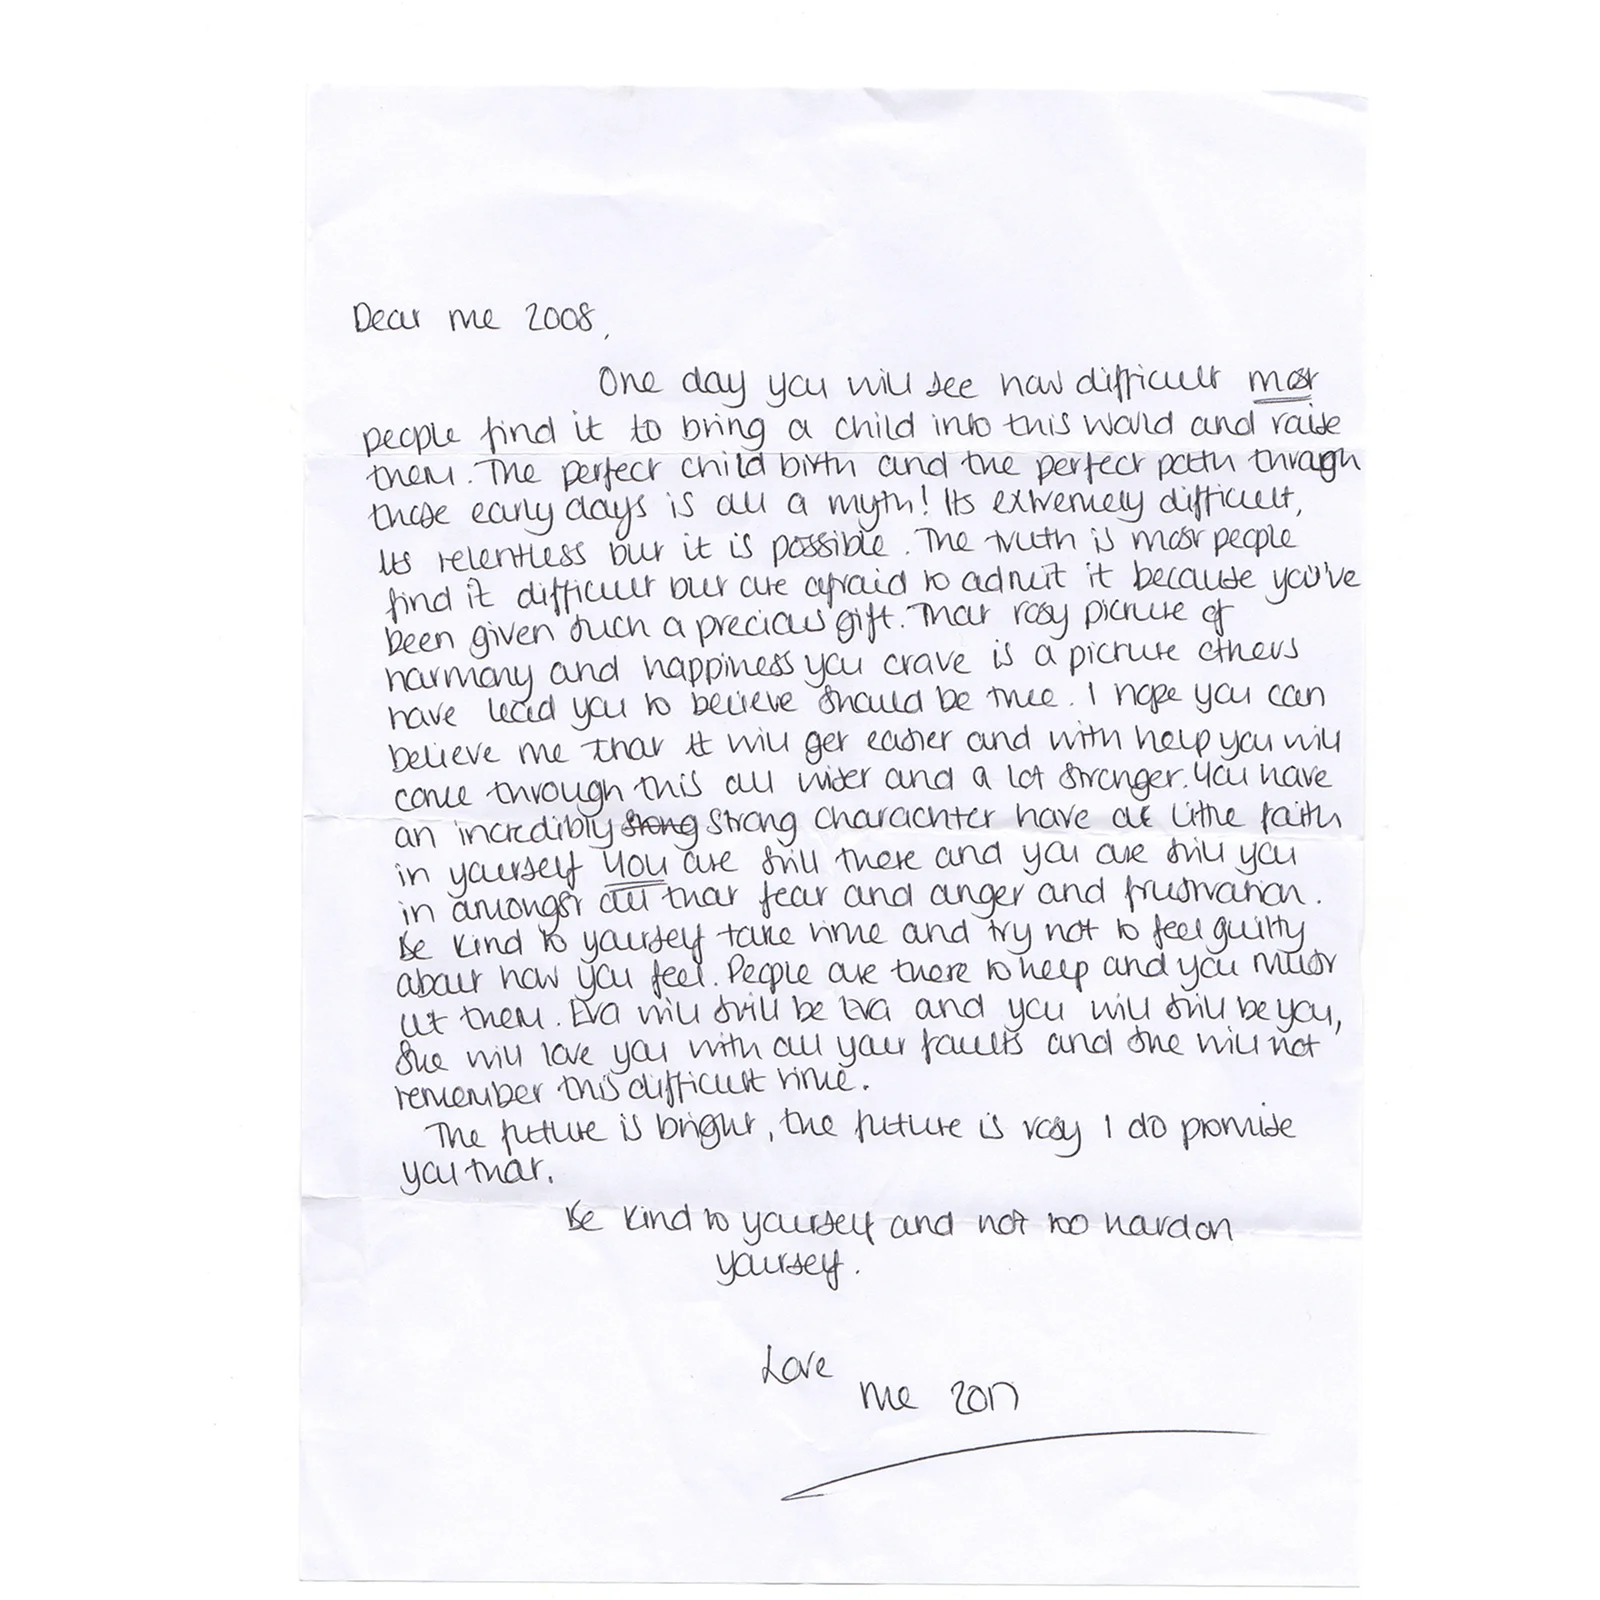 Dear me 2008,
One day you will see how difficult most
people find it to bring a child into this world and raise
them. The perfect child birth and the perfect path through
those early days is all a myth! Its extremely difficult,
Its relentless but it is possible. The truth is most people
find it difficult but are afraid to admit it because you've
been given such a precious gift. That rosy picture of
harmony and happiness you crave is a picture others
have lead you to believe should be true. I hope you can
believe me that it will get easier and with help you will
come through this all wiser and a lot stronger. You have
an incredibly strong strong charachter have a little faith
in yourself you are still there and you are still you
in amongst all that fear and anger and frustration.
Be kind to yourself take time and try not to feel guilty
about how you feel. People are there to help and you must
let them. Eva will still be Eva and you will still be you,
She will love you with all your faults and she will not
remember this difficult time.
The future is bright, the future is rosy I do promise
you that.
Be kind to yourself and not too hard on
yourself.
Love
me 2017